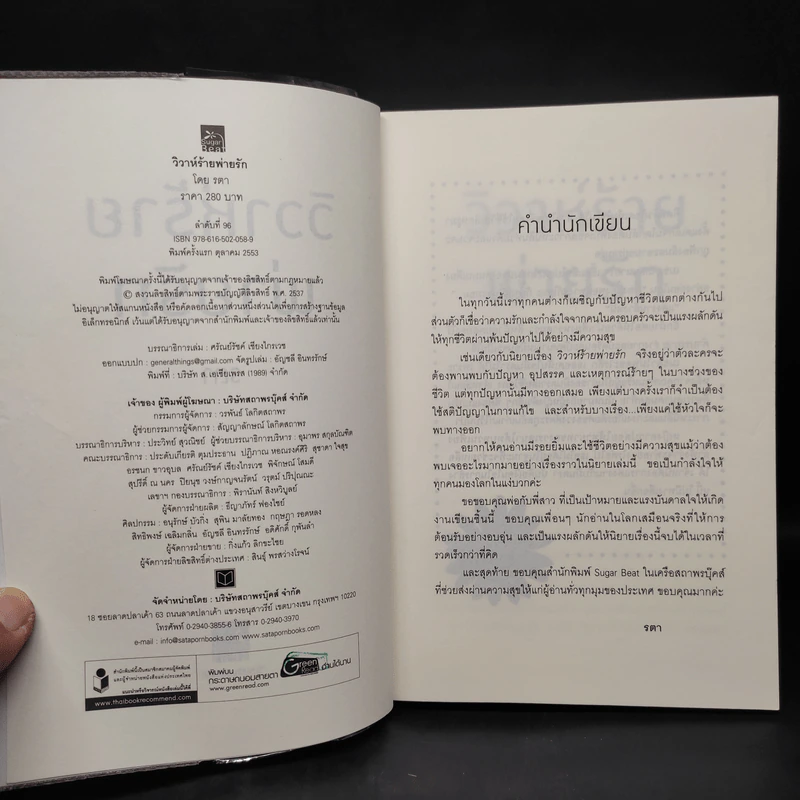 Sugar Beat
วิวาห์ร้ายพ่ายรัก
โดย รตา
ราคา 280 บาท
ลำดับที่ 96
ISBN 978-616-502-058-9
พิมพ์ครั้งแรก ตุลาคม 2553
พิมพ์โฆษณาครั้งนี้ได้รับอนุญาตจากเจ้าของลิขสิทธิ์ตามกฎหมายแล้ว
© สงวนลิขสิทธิ์ตามพระราชบัญญัติลิขสิทธิ์ พ.ศ. 2537
ไม่อนุญาตให้สแกนหนังสือ หรือคัดลอกเนื้อหาส่วนหนึ่งส่วนใดเพื่อการสร้างฐานข้อมูล
อิเล็กทรอนิกส์ เว้นแต่ได้รับอนุญาตจากสำนักพิมพ์และเจ้าของลิขสิทธิ์แล้วเท่านั้น
บรรณาธิการเล่ม : ศรัณย์รัชต์ เชียงไกรเวช
ออกแบบปก : generalthings@gmail.com จัดรูปเล่ม : อัญชลี อินทรักษ์
พิมพ์ที่ : บริษัท ส. เอเซียเพรส (1989) จำกัด
เจ้าของ ผู้พิมพ์ผู้โฆษณา : บริษัทสถาพรบุ๊คส์ จำกัด
กรรมการผู้จัดการ : วรพันธ์ โลกิตสถาพร
ผู้ช่วยกรรมการผู้จัดการ : สัญญาลักษณ์ โลกิตสถาพร
บรรณาธิการบริหาร : ประวิทย์ สุวณิชย์ ผู้ช่วยบรรณาธิการบริหาร : ชุมาพร สกุลบัณฑิต
คณะบรรณาธิการ : ประดับเกียรติ ตุมประธาน ปฏิภาณ หอณรงค์ศิริ สุชาดา ใจสุข
อรชนก ขาวอุบล ศรัณย์รัชต์ เชียงไกรเวช พิจักษณ์ โสมดี
สุปรีดิ์ ณ นคร ปิยนุช วงษ์กาญจนรัตน์ วรุตม์ ปริปุณณะ
เลขาฯ กองบรรณาธิการ : พิรานันท์ สิงหวิบูลย์
ผู้จัดการฝ่ายผลิต : ธีญาภัทร์ ฟองไชย์
ศิลปกรรม : อนุรักษ์ บัวกิ่ง สุพิน มาลัยทอง กฤษฎา รอดหลง
สิทธิพงษ์ เฉลิมกลิ่น อัญชลี อินทรรักษ์ อดิศักดิ์ กุพันลำ
ผู้จัดการฝ่ายขาย : กิ่งแก้ว ลิกขะไชย
ผู้จัดการฝ่ายลิขสิทธิ์ต่างประเทศ : สินธุ์ พรสว่างโรจน์
จัดจำหน่ายโดย : บริษัทสถาพรบุ๊คส์ จำกัด
18 ซอยลาดปลาเค้า 63 ถนนลาดปลาเค้า แขวงอนุสาวรีย์ เขตบางเขน กรุงเทพฯ 10220
โทรศัพท์ 0-2940-3855-6 โทรสาร 0-2940-3970
e-mail : info@satapornbooks.com / satapornbooks.com
สำนักพิมพ์นี้เป็นสมาชิกสมาคมผู้จัดพิมพ์
และผู้จำหน่ายหนังสือแห่งประเทศไทย
แนะนำหรือวิจารณ์หนังสือเล่มนี้ได้ที่
www.thaibookrecommend.com
พิมพ์บน
กระดาษถนอมสายตา Green Read อ่านได้นาน
www.greenread.com
คำนำนักเขียน
ในทุกวันนี้เราทุกคนต่างก็เผชิญกับปัญหาชีวิตแตกต่างกันไป
ส่วนตัวก็เชื่อว่าความรักและกำลังใจจากคนในครอบครัวจะเป็นแรงผลักดัน
ให้ทุกชีวิตผ่านพ้นปัญหาไปได้อย่างมีความสุข
เช่นเดียวกับนิยายเรื่อง วิวาห์ร้ายพ่ายรัก จริงอยู่ว่าตัวละครจะ
ต้องพานพบกับปัญหา อุปสรรค และเหตุการณ์ร้ายๆ ในบางช่วงของ
ชีวิต แต่ทุกปัญหานั้นมีทางออกเสมอ เพียงแต่บางครั้งเราก็จำเป็นต้อง
ใช้สติปัญญาในการแก้ไข และสำหรับบางเรื่อง...เพียงแค่ใช้หัวใจก็จะ
พบทางออก
อยากให้คนอ่านมีรอยยิ้มและใช้ชีวิตอย่างมีความสุขแม้ว่าต้อง
พบเจออะไรมากมายอย่างเรื่องราวในนิยายเล่มนี้ ขอเป็นกำลังใจให้
ทุกคนมองโลกในแง่บวกค่ะ
ขอขอบคุณพ่อกับพี่สาว ที่เป็นเป้าหมายและแรงบันดาลใจให้เกิด
งานเขียนชิ้นนี้ ขอบคุณเพื่อนๆ นักอ่านในโลกเสมือนจริงที่ให้การ
ต้อนรับอย่างอบอุ่น และเป็นแรงผลักดันให้นิยายเรื่องนี้จบได้ในเวลาที่
รวดเร็วกว่าที่คิด
และสุดท้าย ขอบคุณสำนักพิมพ์ Sugar Beat ในเครือสถาพรบุ๊คส์
ที่ช่วยส่งผ่านความสุขให้แก่ผู้อ่านทั่วทุกมุมของประเทศ ขอบคุณมากค่ะ
รตา